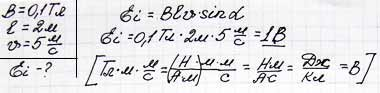 B=0,1Тл
l=2м
v=5 м/с
Ei-?
Ei=Blv·sinα
Ei=0,1Тл·2м·5 м/с=1В
[Тл·м·м/с=(Н/Ам)·м·м/с=Нм/Ас=Дж/Кл=В]